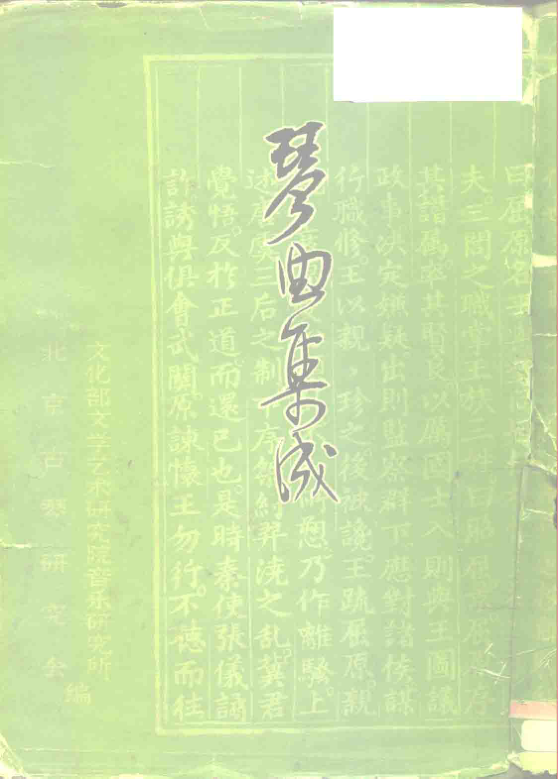 琴曲集成
曰屈原名平與
夫三閭之職掌王族三姓曰昭屈景屈原序
其譜屬率其賢良以厲國士入則與王圖議
政事決定嫌疑出則監察群下應對諸侯謀
行職修王以親珍之後被讒王疏屈原親
怨乃作離騷上
述唐虞三后之制序桀紂羿澆之亂冀君
覺悟反於正道而還已也是時秦使張儀譎
詐誘與俱會武關原諫懷王勿行不德而往
文化部文学艺术研究院音乐研究所
北京古琴研究会
编